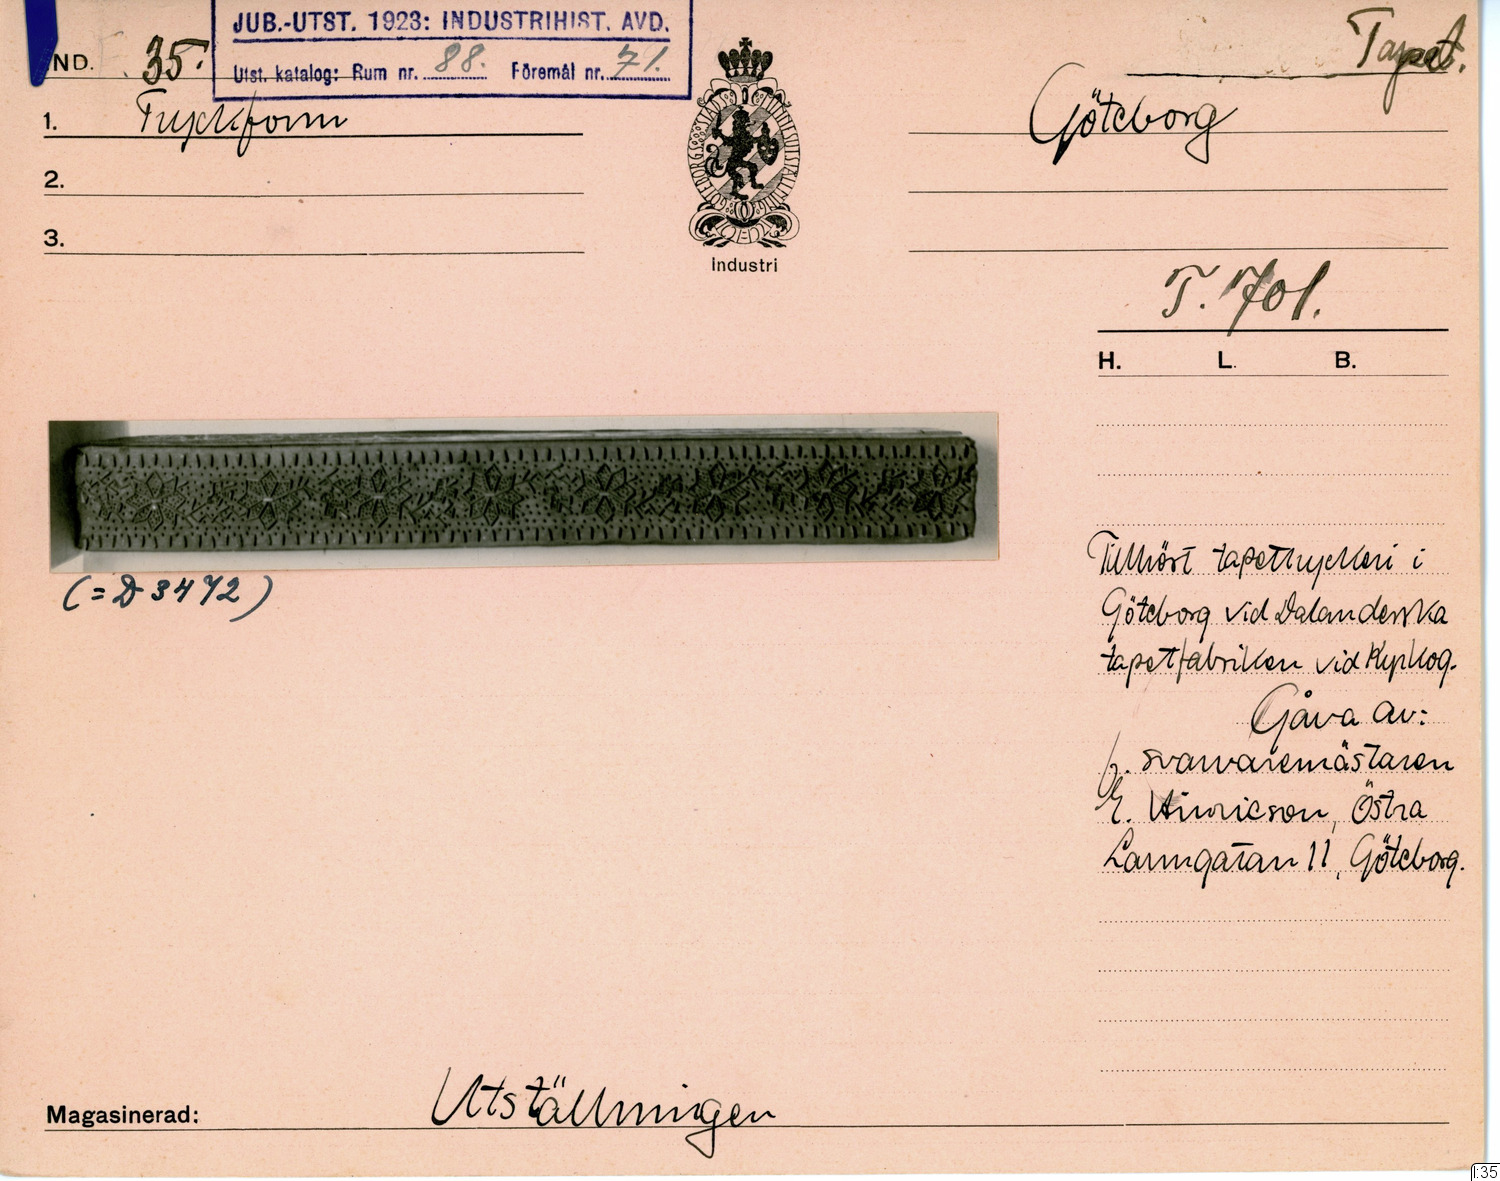 JUB.-UTST. 1923: INDUSTRIHIST. AVD.
Utst. katalog: Rum nr. 88. Föremål nr. 71.
IND. 35.
Tapet.
1. Tryckform
Göteborg
2.
3.
GÖTEBORGS STADS MINNESUTSTÄLLNING
Industri
T. 701.
H. L. B.
(= D 3472)
Tillhört tapettryckeri i
Göteborg vid Dalanderska
tapetfabriken vid Kyrkog.
Gåva av:
f. svarvaremästaren
E. Hinricson, Östra
Larmgatan 11, Göteborg.
Magasinerad: Utställningen
I:35